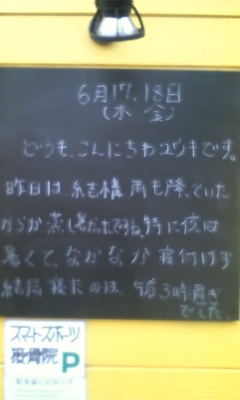 6月17.18日
(木 金)
どうも、こんにちわユウキです。
昨日は結構雨も降っていた
からか蒸し暑かったですね。特に夜は
暑くて、なかなか寝付けず
結局寝たのは、朝3時過ぎ
でした。
スマートスポーツ
接骨院 P